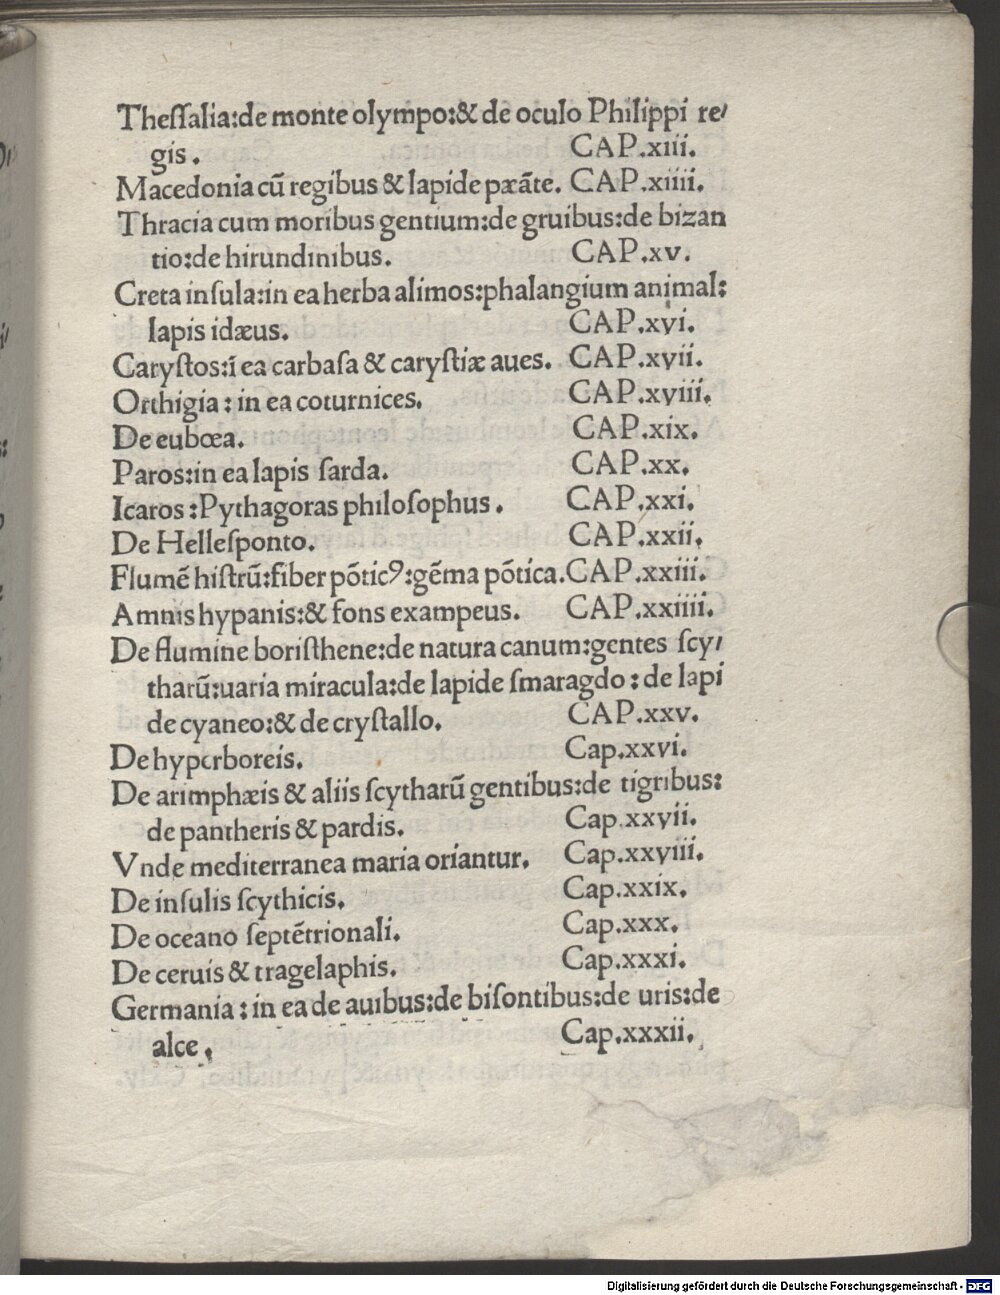 Theſſalia:de monte olympo:& de oculo Philippi re/
gis. CAP.xiii.
Macedonia cũ regibus & lapide pæãte. CAP.xiiii.
Thracia cum moribus gentium:de gruibus:de bizan
tio:de hirundinibus. CAP.xv.
Creta inſula:in ea herba alimos:phalangium animal:
lapis idæus. CAP.xvi.
Caryſtos:ĩ ea carbaſa & caryſtiæ aues. CAP.xvii.
Orthigia: in ea coturnices. CAP.xviii.
De eubœa. CAP.xix.
Paros:in ea lapis ſarda. CAP.xx.
Icaros:Pythagoras philoſophus. CAP.xxi.
De Helleſponto. CAP.xxii.
Flumẽ hiſtrũ:fiber põticꝰ:gẽma põtica.CAP.xxiii.
Amnis hypanis:& fons exampeus. CAP.xxiiii.
De flumine boriſthene:de natura canum:gentes ſcy/
tharũ:uaria miracula:de lapide ſmaragdo: de lapi
de cyaneo:& de cryſtallo. CAP.xxv.
De hyperboreis. Cap.xxvi.
De arimphæis & aliis ſcytharũ gentibus:de tigribus:
de pantheris & pardis. Cap.xxvii.
Vnde mediterranea maria oriantur. Cap.xxviii.
De inſulis ſcythicis. Cap.xxix.
De oceano ſeptẽtrionali. Cap.xxx.
De ceruis & tragelaphis. Cap.xxxi.
Germania: in ea de auibus:de biſontibus:de uris:de
alce. Cap.xxxii.
Digitalisierung gefördert durch die Deutsche Forschungsgemeinschaft - DFG